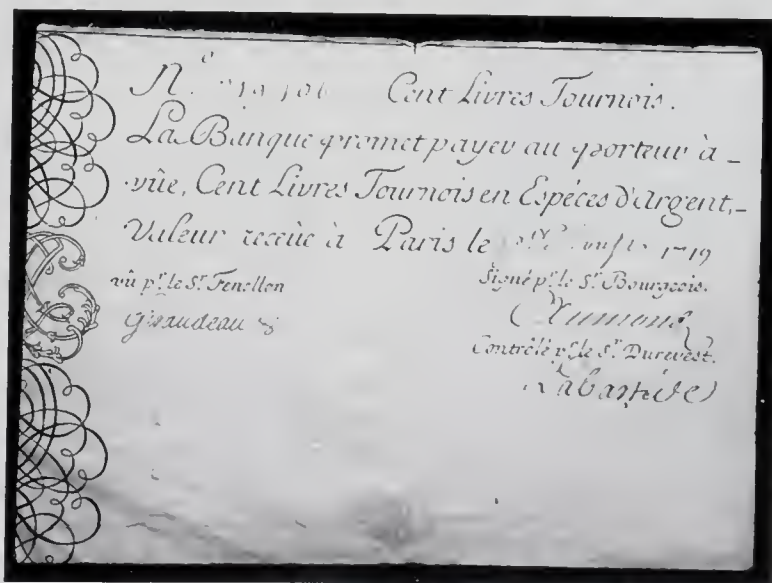 N.º Cent Livres Tournois.
La Banque promet payer au porteur à_
vûe, Cent Livres Tournois en Espéces d'Argent,_
Valeur receüe à Paris le 1719
vû p.r le S.r Fenellon
Signé p.r le S.r Bourgeois.
Giraudeau
Contrôlé p.r le S.r Durevest.